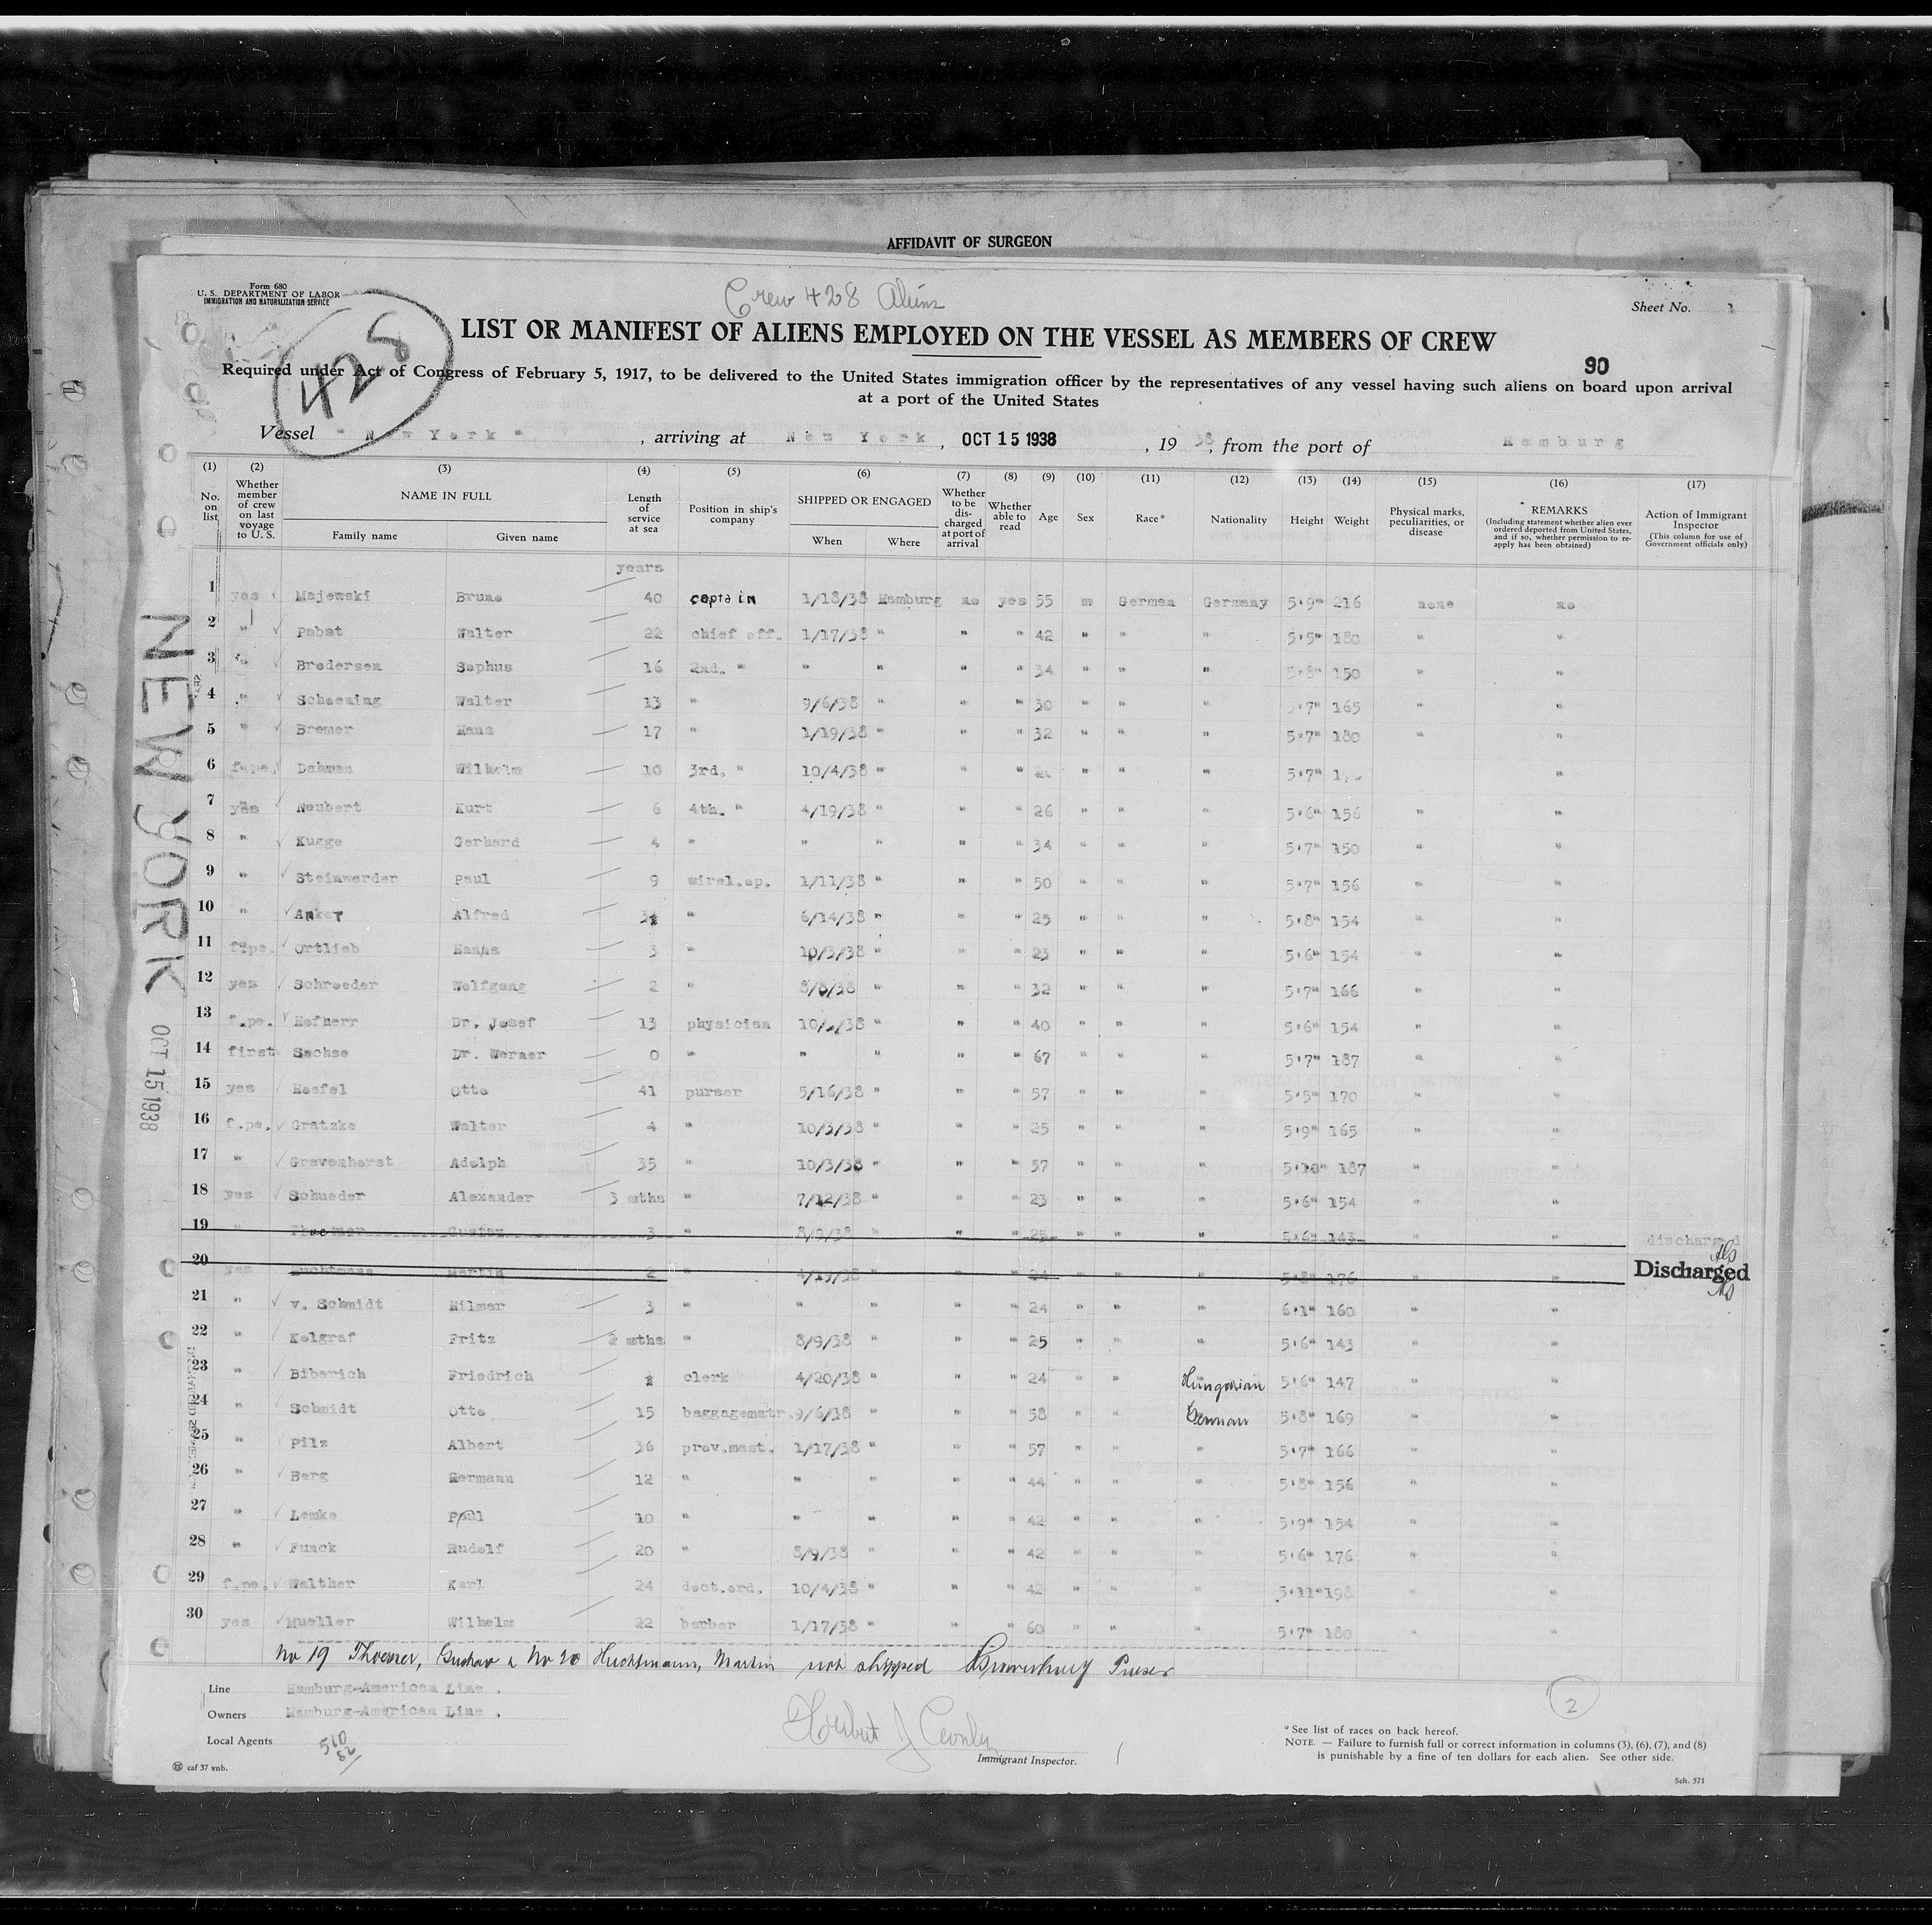 AFFIDAVIT OF SURGEON
Form 680
U. S. DEPARTMENT OF LABOR
IMMIGRATION AND NATURALIZATION SERVICE
Crew 428 Aliens
Sheet No. 1
428
LIST OR MANIFEST OF ALIENS EMPLOYED ON THE VESSEL AS MEMBERS OF CREW
90
Required under Act of Congress of February 5, 1917, to be delivered to the United States immigration officer by the representatives of any vessel having such aliens on board upon arrival
at a port of the United States
Vessel "New York", arriving at New York, OCT 15 1938, 1938, from the port of Hamburg
(1) (2) (3) (4) (5) (6) (7) (8) (9) (10) (11) (12) (13) (14) (15) (16) (17)
No. on list
Whether member of crew on last voyage to U. S.
NAME IN FULL
Family name Given name
Length of service at sea
Position in ship's company
SHIPPED OR ENGAGED
When Where
Whether to be discharged at port of arrival
Whether able to read
Age Sex Race* Nationality Height Weight
Physical marks, peculiarities, or disease
REMARKS
(Including statement whether alien ever ordered deported from United States, and if so, whether permission to re-apply has been obtained)
Action of Immigrant Inspector
(This column for use of Government officials only)
years
1 yes Majewski Bruno 40 captain 1/18/38 Hamburg no yes 55 m German Germany 5'9" 216 none no
2 " Pabst Walter 22 chief off. 1/17/38 " " " 42 " " " 5'5" 180 " "
3 " Brodersen Sophus 16 2nd. " " " " " 34 " " " 5'8" 150 " "
4 " Schoening Walter 13 " 9/6/38 " " " 30 " " " 5'7" 165 " "
5 " Bremer Hans 17 " 1/19/38 " " " 32 " " " 5'7" 180 " "
6 f.pe. Dahmen Wilhelm 10 3rd. " 10/4/38 " " " " " " 5'7" " "
7 yes Neubert Kurt 6 4th. " 4/19/38 " " " 26 " " " 5'6" 156 " "
8 " Kugge Gerhard 4 " " " " " 34 " " " 5'7" 150 " "
9 " Steinwerder Paul 9 wirel.op. 1/11/38 " " " 50 " " " 5'7" 156 " "
10 " Anker Alfred " 6/14/38 " " " 25 " " " 5'8" 154 " "
11 f.pe. Ortlieb Hanns 3 " 10/3/38 " " " 23 " " " 5'6" 154 " "
12 yes Schroeder Wolfgang 2 " 8/8/38 " " " 32 " " " 5'7" 166 " "
13 f.pe. Hofherr Dr. Josef 13 physician " " " 40 " " " 5'6" 154 " "
14 first Sachse Dr. Werner 0 " " " " " 67 " " " 5'7" 187 " "
15 yes Hoefel Otto 41 purser 5/16/38 " " " 57 " " " 5'5" 170 " "
16 f.pe. Gratzke Walter 4 " 10/3/38 " " " 25 " " " 5'9" 165 " "
17 " Gravenhorst Adolph 35 " 10/3/38 " " " 57 " " " 5'10" 187 " "
18 yes Schueder Alexander 3 mths " 7/12/38 " " " 23 " " " 5'6" 154 " "
19 " Thoemer Gustav 3 " 8/9/38 " " " 25 " " " 5'6" 143 " " discharged
20 yes Huchtmann Martin 2 " 4/19/38 " " " 24 " " " 5'8" 176 " " Discharged
21 " v. Schmidt Hilmar 3 " " " " " 24 " " " 6'1" 160 " "
22 " Kolgraf Fritz 2 mths " 8/9/38 " " " 25 " " " 5'6" 143 " "
23 " Bibarich Friedrich clerk 4/20/38 " " " 24 " " Hungarian 5'6" 147 " "
24 " Schmidt Otto 15 baggagemstr. 9/6/38 " " " 58 " " German 5'8" 169 " "
25 " Pilz Albert 36 prov.mast. 1/17/38 " " " 57 " " " 5'7" 166 " "
26 " Berg Hermann 12 " " " " " 44 " " " 5'8" 156 " "
27 " Lemke Paul 10 " " " " " 42 " " " 5'9" 154 " "
28 " Funck Rudolf 20 " 8/9/38 " " " 42 " " " 5'6" 176 " "
29 f.pe. Walther Karl 24 doct.ord. 10/4/38 " " " 42 " " " 5'11" 198 " "
30 yes Mueller Wilhelm 22 barber 1/17/38 " " " 60 " " " 5'7" 180 " "
No 19 Thoemer, Gustav & No 20 Huchtmann, Martin not shipped Purser
Line Hamburg-American Line.
Owners Hamburg-American Line.
Local Agents
510
82
Herbert J
Immigrant Inspector.
2
* See list of races on back hereof.
NOTE. — Failure to furnish full or correct information in columns (3), (6), (7), and (8)
is punishable by a fine of ten dollars for each alien. See other side.
caf 37 vnb.
Sch. 571
NEW YORK OCT 15 1938